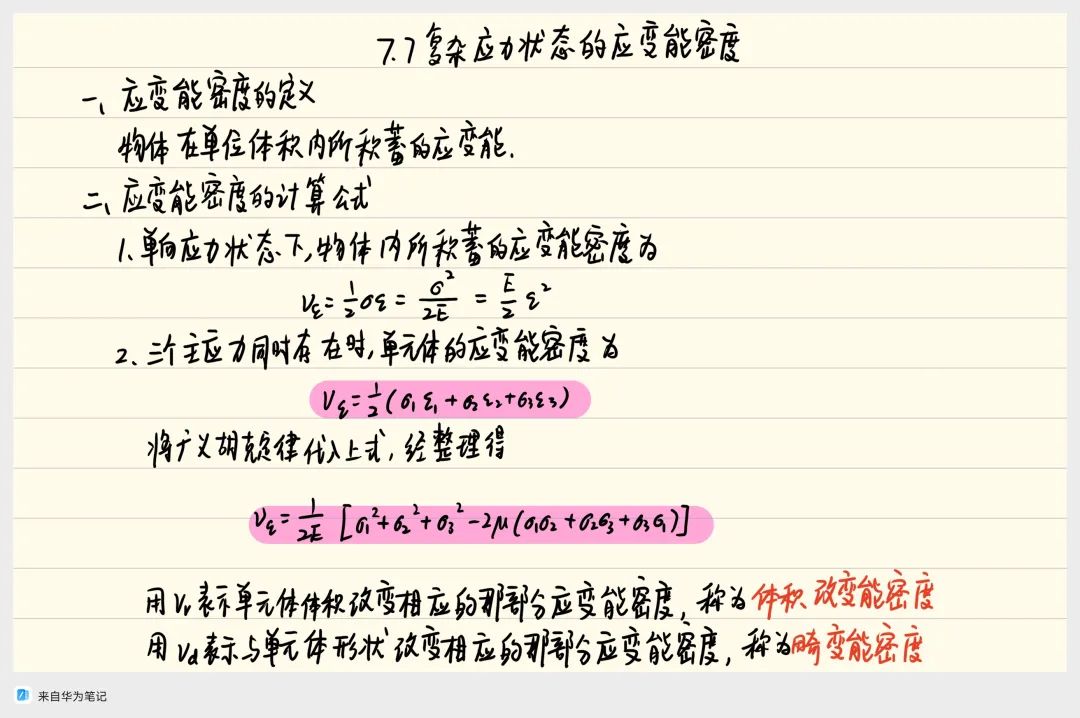 7.7 复杂应力状态的应变能密度
一、应变能密度的定义
物体在单位体积内所积蓄的应变能.
二、应变能密度的计算公式
1. 单向应力状态下,物体内所积蓄的应变能密度为
Vε=1/2σε=σ²/2E=E/2ε²
2. 三个主应力同时存在时,单元体的应变能密度为
Vε=1/2(σ1ε1+σ2ε2+σ3ε3)
将广义胡克定律代入上式,经整理得
Vε=1/2E[σ1²+σ2²+σ3²-2μ(σ1σ2+σ2σ3+σ3σ1)]
用Vv表示单元体体积改变相应的那部分应变能密度,称为体积改变能密度
用Vd表示与单元体形状改变相应的那部分应变能密度,称为畸变能密度
来自华为笔记